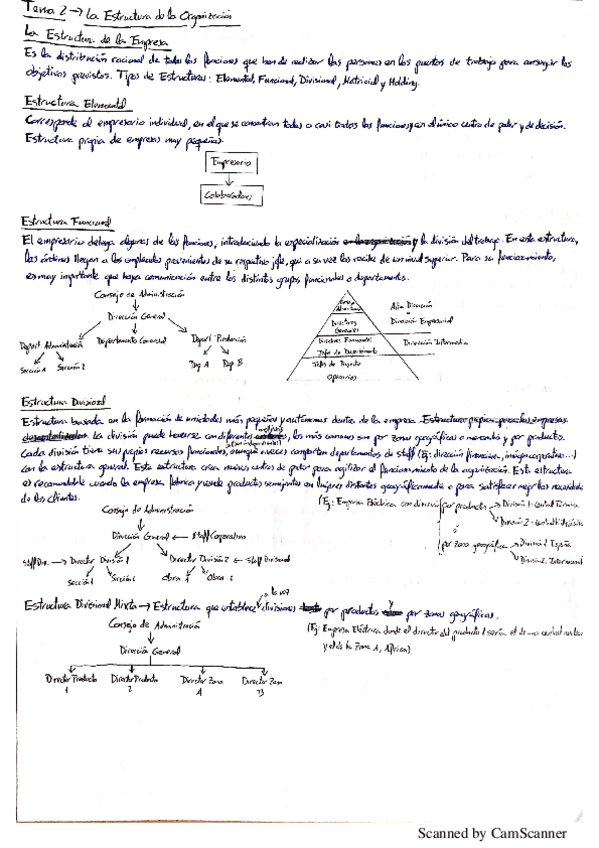 Tema 2 → La Estructura de la Organización
La Estructura de la Empresa
Es la distribución racional de todas las funciones que han de realizar las personas en los puestos de trabajo para conseguir los
objetivos previstos. Tipos de Estructuras: Elemental, Funcional, Divisional, Matricial y Holding.
Estructura Elemental
Corresponde al empresario individual, en el que se concentran todas o casi todas las funciones, y en el único centro de poder y de decisión.
Estructura propia de empresas muy pequeñas.
Empresario
Colaboradores
Estructura Funcional
El empresario delega algunas de las funciones, introduciendo la especialización y la división del trabajo. En esta estructura,
las órdenes llegan a los empleados provenientes de su respectivo jefe, que a su vez las recibe de un nivel superior. Para su funcionamiento,
es muy importante que haya comunicación entre los distintos grupos funcionales o departamentos.
Consejo de Administración
Dirección General
Depart Administración Departamento Comercial Depart Producción
Sección 1 Sección 2 Dep A Dep B
Alta Dirección
Directores Generales
Dirección Empresarial
Directores Funcionales
Dirección Intermedia
Jefes de Departamento
Operarios
Estructura Divisional
Estructura basada en la formación de unidades más pequeñas y autónomas dentro de la empresa.
La división puede hacerse con diferentes motivos, los más comunes son por zonas geográficas o mercados y por producto.
Cada división tiene sus propios recursos funcionales, aunque a veces comparten departamentos de staff (Ej: dirección financiera, imagen corporativa...)
con la estructura general. Esta estructura crea nuevos centros de poder para agilizar el funcionamiento de la organización. Esta estructura
es recomendable cuando la empresa fabrica y vende productos semejantes en lugares distantes geográficamente o para satisfacer mejor las necesidades
de los clientes.
(Ej: Empresa Eléctrica con división por productos → División 1: central térmica
División 2: central
o
por zona geográfica → División 1: España
División 2: Internacional
Consejo de Administración
Dirección General ← Staff Corporativo
Staff Div. → Director División 1 Director División 2 ← Staff Divisional
Sección 1 Sección 2 Obra 1 Obra 2
Estructura Divisional Mixta → Estructura que establece a la vez divisiones por productos y por zonas geográficas.
Consejo de Administración
Dirección General
Director Producto 1 Director Producto 2 Director Zona A Director Zona B
(Ej: Empresa Eléctrica donde el director del producto 1 sería el de una central nuclear
y el de la Zona A, Africa)
Scanned by CamScanner